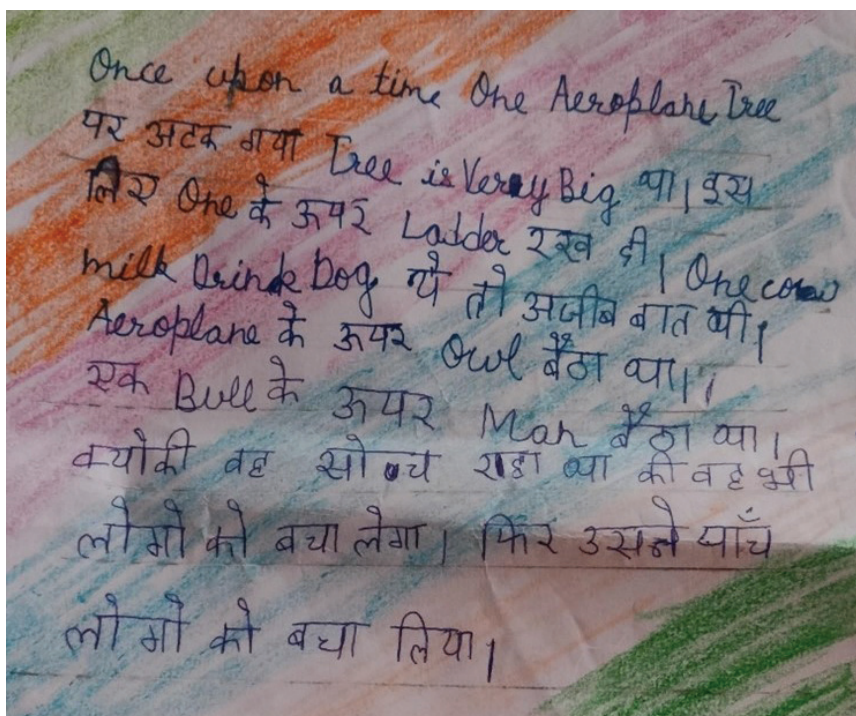 Once upon a time One Aeroplane Tree
पर अटक गया Tree is Very Big था। इस
लिए One के ऊपर Ladder रख दी। One cow
milk Drink Dog ये तो अजीब बात थी।
Aeroplane के ऊपर Owl बैठा था।।
एक Bull के ऊपर Man बैठा था।
क्योकी वह सोच राहा था की वह भी
लोगो को बचा लेगा। फिर उसने पाँच
लोगो को बचा लिया।